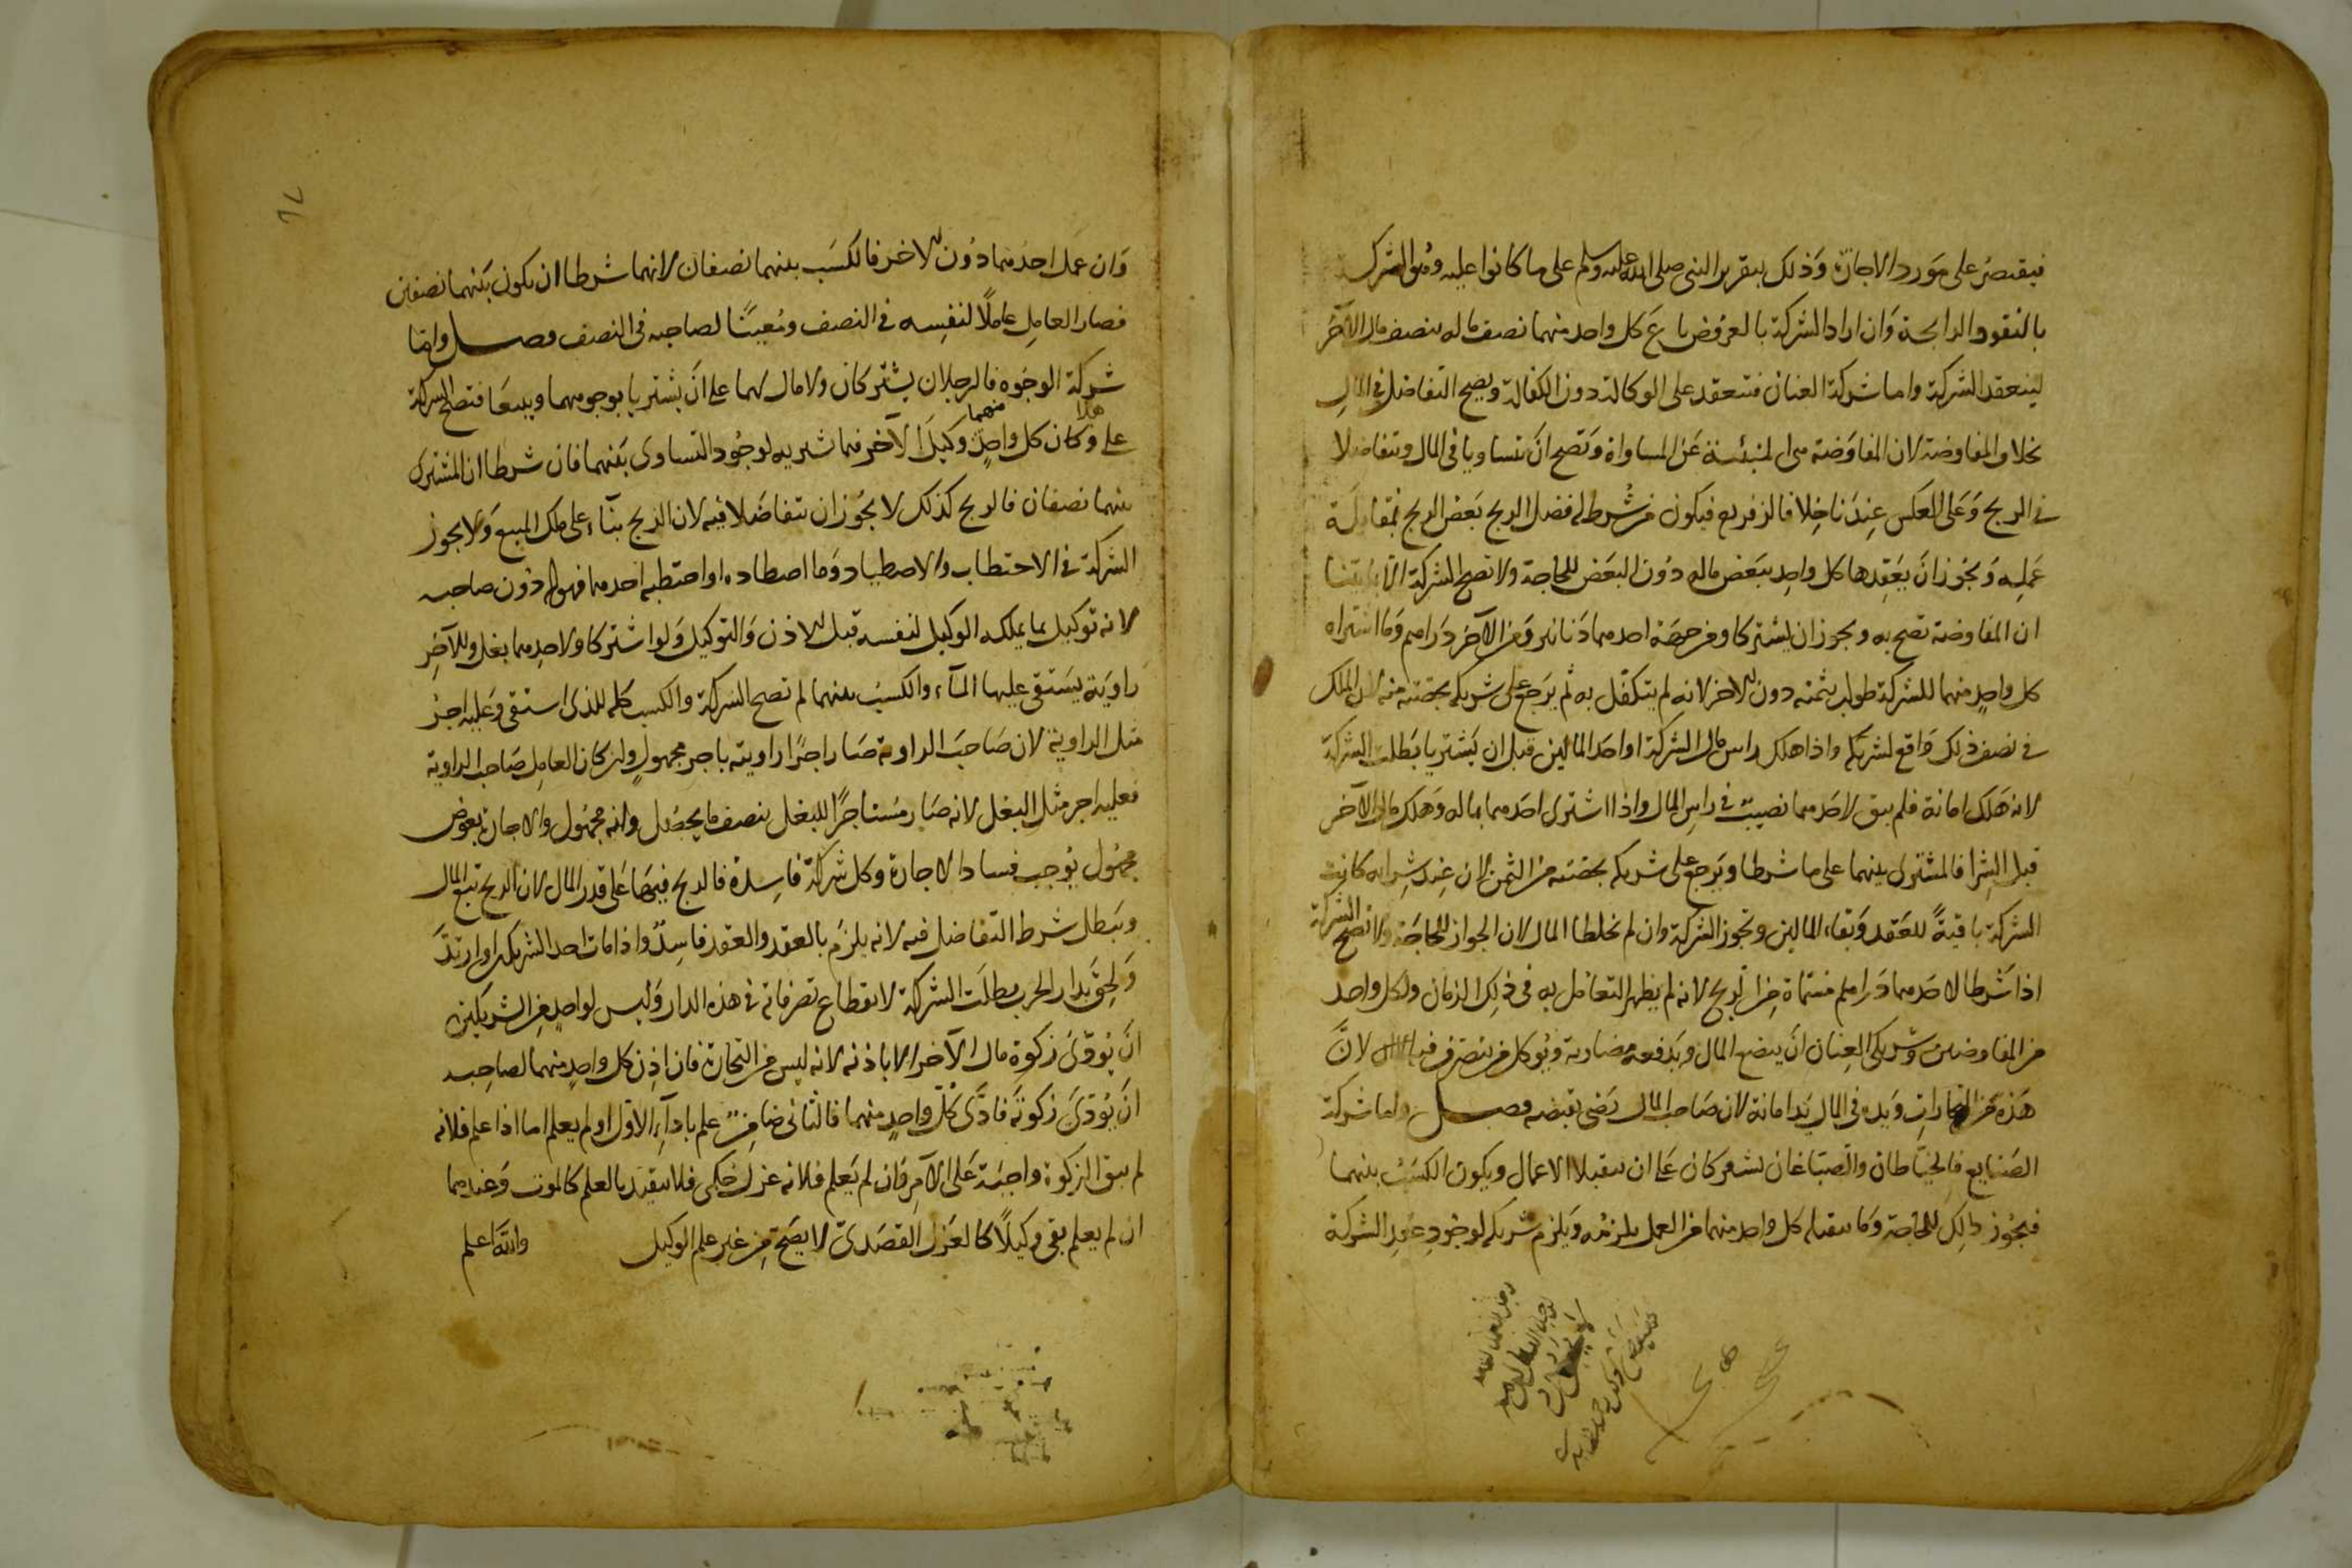 فيقتصر على مورد الاجازة وذلك بتقرير النبي صلى الله عليه وسلم على ما كانوا عليه وهو الشركة
بالنقود الرابحة وان اراد الشركة بالعروض باع كل واحد منهما نصف ماله بنصف مال الآخر
لينعقد الشركة واما شركة العنان فتنعقد على الوكالة دون الكفالة ويصح التفاضل في المال
بخلاف المفاوضة لان المفاوضة هي المنبئة عن المساواة وتصح ان يتساويا في المال ويتفاضلا
في الربح وعلى العكس عندنا خلافا لزفر رح فيكون من شرط له فضل الربح بعض الربح بمقابلة
عمله ويجوز ان يعقدها كل واحد ببعض ماله دون البعض للحاجة ولا تصح الشركة الا بما بينا
ان المفاوضة تصح به ويجوز ان يشتركا ومن جهة احدهما دنانير ومن الآخر دراهم وما اشتراه
كل واحد منهما للشركة طولب بثمنه دون الاخر لانه لم يتكفل به ثم يرجع على شريكه بحصته منه لان الملك
في نصف ذلك واقع لشريكه واذا هلك راس مال الشركة او احد المالين قبل ان يشتريا بطلت الشركة
لانه هلك امانة فلم يبق لاحدهما نصيب في راس المال واذا اشترى احدهما بماله وهلك مال الآخر
قبل الشرا فالمشترى بينهما على ما شرطا ويرجع على شريكه بحصته من الثمن لان عند شرائه كانت
الشركة باقية للعقد وبقاء المالين وتجوز الشركة وان لم يخلطا المال لان الجواز للحاجة ولا تصح الشركة
اذا شرطا لاحدهما دراهم مسماة من الربح لانه لم يظهر التعامل به في ذلك الزمان ولكل واحد
من المفاوضين وشريكي العنان ان يبضع المال ويدفعه مضاربة ويوكل من يتصرف فيه لان
هذه من التجارات ويده في المال يد امانة لان صاحب المال رضى بقبضه فصل واما شركة
الصنايع فالخياطان والصباغان يشتركان على ان يتقبلا الاعمال ويكون الكسب بينهما
فيجوز ذلك للحاجة وما يتقبله كل واحد منهما من العمل يلزمه ويلزم شريكه لوجود عقد الشركة
٦٧
وان عمل احدهما دون الاخر فالكسب بينهما نصفان لانهما شرطا ان يكون بينهما نصفين
فصار العامل عاملا لنفسه في النصف ومعينا لصاحبه في النصف فصل واما
شركة الوجوه فالرجلان يشتركان ولا مال لهما على ان يشتريا بوجوههما ويبيعا فتصح الشركة
على هذا وكان كل واحد منهما وكيل الآخر فيما شريه لوجود التساوى بينهما فان شرطا ان المشترى
بينهما نصفان فالربح كذلك لا يجوز ان يتفاضلا فيه لان الربح بناء على ملك المبيع ولا يجوز
الشركة في الاحتطاب والاصطياد وما اصطاده او احتطبه احدهما فهو له دون صاحبه
لانه توكيل بما يملكه الوكيل لنفسه قبل الاذن والتوكيل ولو اشتركا ولاحدهما بغل وللآخر
راوية يستقى عليها الماء والكسب بينهما لم تصح الشركة والكسب كله للذى استقى وعليه اجر
مثل الراوية لان صاحب الراوية صار اجرا راويته باجر مجهول وان كان العامل صاحب الراوية
فعليه اجر مثل البغل لانه صار مستاجرا للبغل بنصف ما يحصل وانه مجهول والاجارة بعوض
مجهول يوجب فساد الاجارة وكل شركة فاسدة فالربح فيها على قدر المال لان الربح تبع المال
ويبطل شرط التفاضل فيه لانه يلزم بالعقد والعقد فاسد واذا مات احد الشريكين او ارتد
ولحق بدار الحرب بطلت الشركة لانقطاع تصرفاته في هذه الدار وليس لواحد من الشريكين
ان يؤدى زكوة مال الآخر الا باذنه لانه ليس من التجارة فان اذن كل واحد منهما لصاحبه
ان يؤدى زكوته فادى كل واحد منهما فالثانى ضامن علم باداء الاول او لم يعلم اما اذا علم فلانه
لم يبق الزكوة واجبة على الآمر فان لم يعلم فلانه عزل حكمى فلا يتقيد بالعلم كالموت وعندهما
ان لم يعلم بقى وكيلا كالعزل القصدى لا يصح من غير علم الوكيل والله اعلم